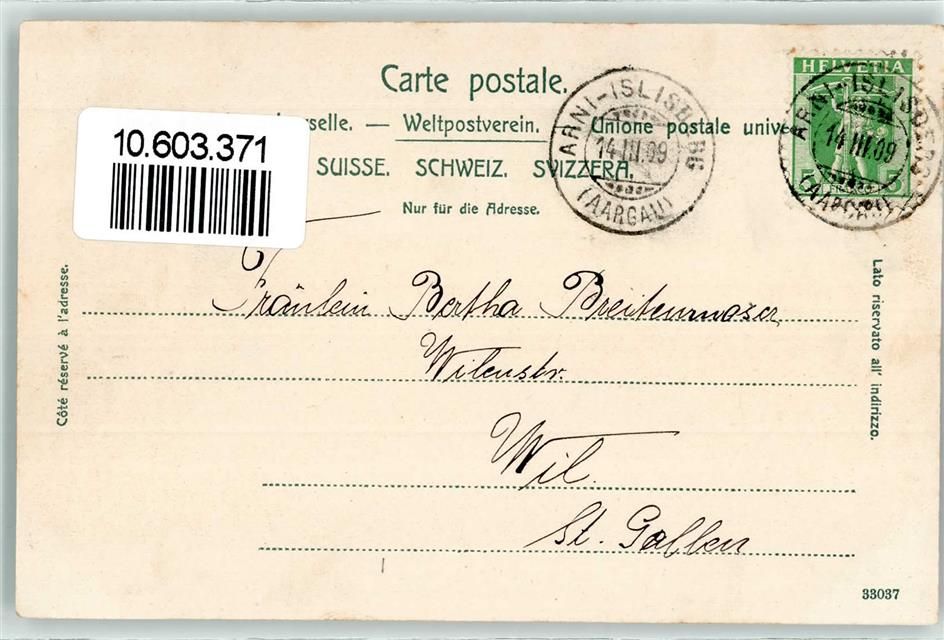 HELVETIA
5 5
ARNI-ISLISBERG
14.III.09
(AARGAU)
Carte postale.
ARNI-ISLISBERG
14.III.09
(AARGAU)
10.603.371
erselle. — Weltpostverein. — Unione postale unive
SUISSE. SCHWEIZ. SVIZZERA.
Nur für die Adresse.
Côté réservé à l'adresse.
Lato riservato all' indirizzo.
Fräulein Bertha Breitenmoser,
Wilenstr.
Wil.
St. Gallen
33037